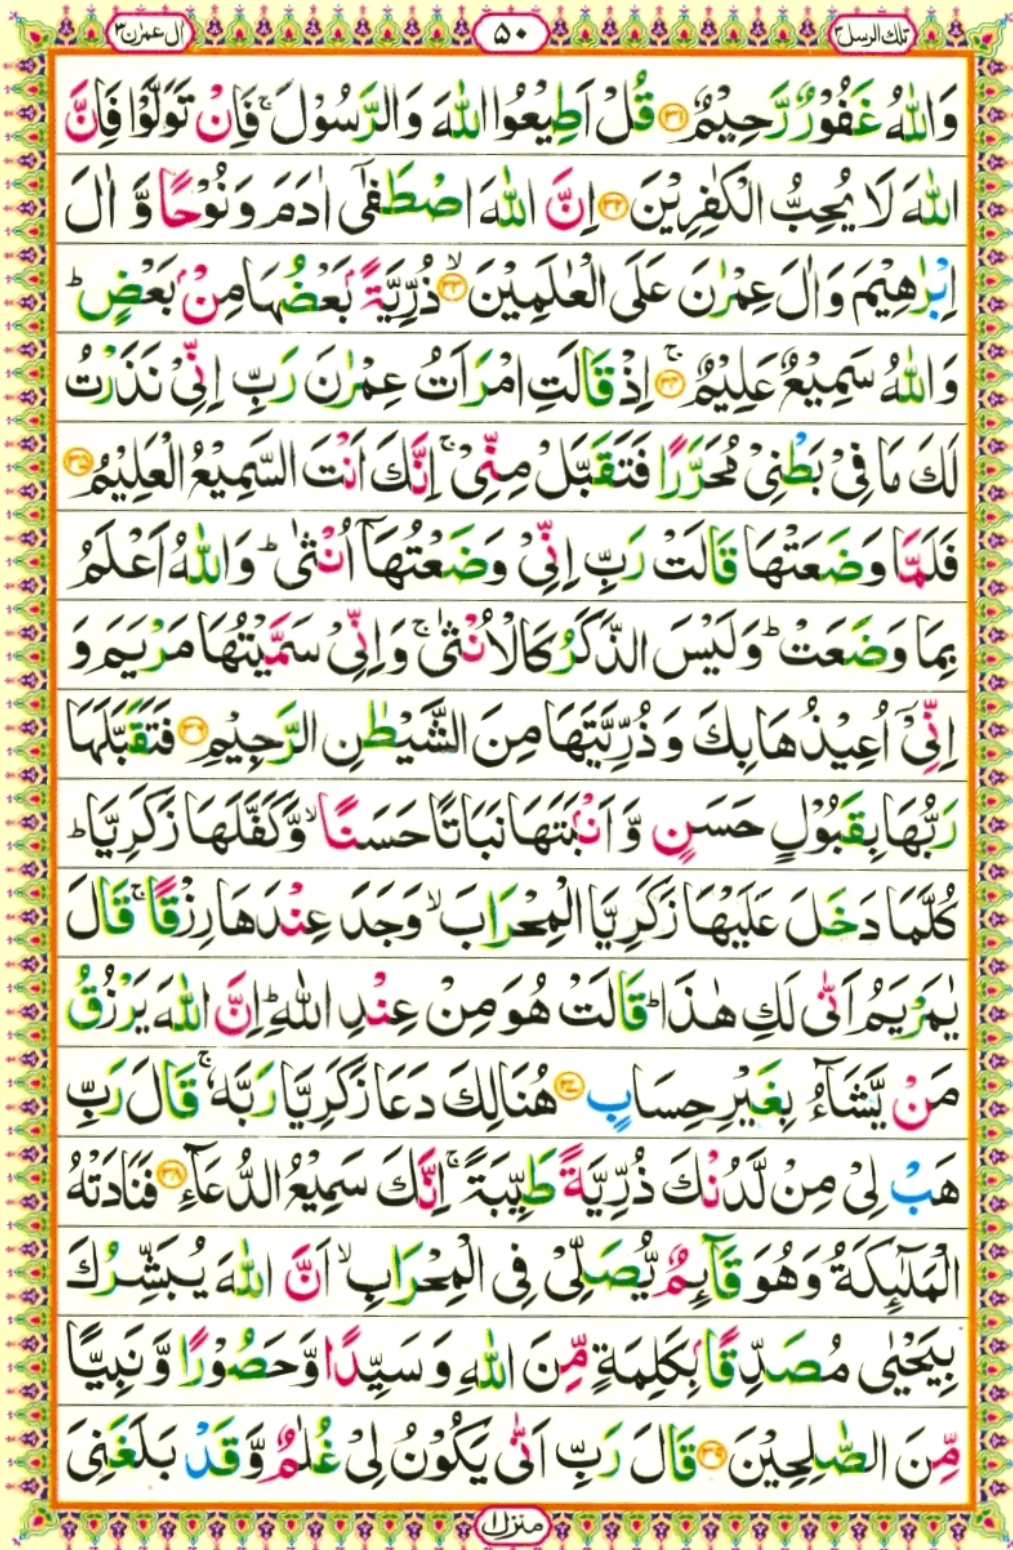 تلك الرسل ٣ ٥٠ ال عمرٰن ٣
وَاللّٰهُ غَفُوْرٌ رَّحِيْمٌ ﴿۳۱﴾ قُلْ اَطِيْعُوا اللّٰهَ وَالرَّسُوْلَ ۚ فَاِنْ تَوَلَّوْا فَاِنَّ
اللّٰهَ لَا يُحِبُّ الْكٰفِرِيْنَ ﴿۳۲﴾ اِنَّ اللّٰهَ اصْطَفٰۤى اٰدَمَ وَ نُوْحًا وَّ اٰلَ
اِبْرٰهِيْمَ وَ اٰلَ عِمْرٰنَ عَلَى الْعٰلَمِيْنَ ﴿۳۳﴾ ۙ ذُرِّيَّةًۢ بَعْضُهَا مِنْۢ بَعْضٍ ؕ
وَاللّٰهُ سَمِيْعٌ عَلِيْمٌ ﴿۳۴﴾ ۚ اِذْ قَالَتِ امْرَاَتُ عِمْرٰنَ رَبِّ اِنِّيْ نَذَرْتُ
لَكَ مَا فِيْ بَطْنِيْ مُحَرَّرًا فَتَقَبَّلْ مِنِّيْ ۚ اِنَّكَ اَنْتَ السَّمِيْعُ الْعَلِيْمُ ﴿۳۵﴾
فَلَمَّا وَضَعَتْهَا قَالَتْ رَبِّ اِنِّيْ وَضَعْتُهَاۤ اُنْثٰى ؕ وَاللّٰهُ اَعْلَمُ
بِمَا وَضَعَتْ ؕ وَ لَيْسَ الذَّكَرُ كَالْاُنْثٰى ۚ وَ اِنِّيْ سَمَّيْتُهَا مَرْيَمَ وَ
اِنِّيْۤ اُعِيْذُهَا بِكَ وَ ذُرِّيَّتَهَا مِنَ الشَّيْطٰنِ الرَّجِيْمِ ﴿۳۶﴾ فَتَقَبَّلَهَا
رَبُّهَا بِقَبُوْلٍ حَسَنٍ وَّ اَنْۢبَتَهَا نَبَاتًا حَسَنًا ۙ وَّ كَفَّلَهَا زَكَرِيَّا ؕ
كُلَّمَا دَخَلَ عَلَيْهَا زَكَرِيَّا الْمِحْرَابَ ۙ وَجَدَ عِنْدَهَا رِزْقًا ۚ قَالَ
يٰمَرْيَمُ اَنّٰى لَكِ هٰذَا ؕ قَالَتْ هُوَ مِنْ عِنْدِ اللّٰهِ ؕ اِنَّ اللّٰهَ يَرْزُقُ
مَنْ يَّشَآءُ بِغَيْرِ حِسَابٍ ﴿۳۷﴾ هُنَالِكَ دَعَا زَكَرِيَّا رَبَّهٗ ۚ قَالَ رَبِّ
هَبْ لِيْ مِنْ لَّدُنْكَ ذُرِّيَّةً طَيِّبَةً ۚ اِنَّكَ سَمِيْعُ الدُّعَآءِ ﴿۳۸﴾ فَنَادَتْهُ
الْمَلٰٓئِكَةُ وَ هُوَ قَآئِمٌ يُّصَلِّيْ فِي الْمِحْرَابِ ۙ اَنَّ اللّٰهَ يُبَشِّرُكَ
بِيَحْيٰى مُصَدِّقًۢا بِكَلِمَةٍ مِّنَ اللّٰهِ وَ سَيِّدًا وَّ حَصُوْرًا وَّ نَبِيًّا
مِّنَ الصّٰلِحِيْنَ ﴿۳۹﴾ قَالَ رَبِّ اَنّٰى يَكُوْنُ لِيْ غُلٰمٌ وَّ قَدْ بَلَغَنِيَ
منزل ١